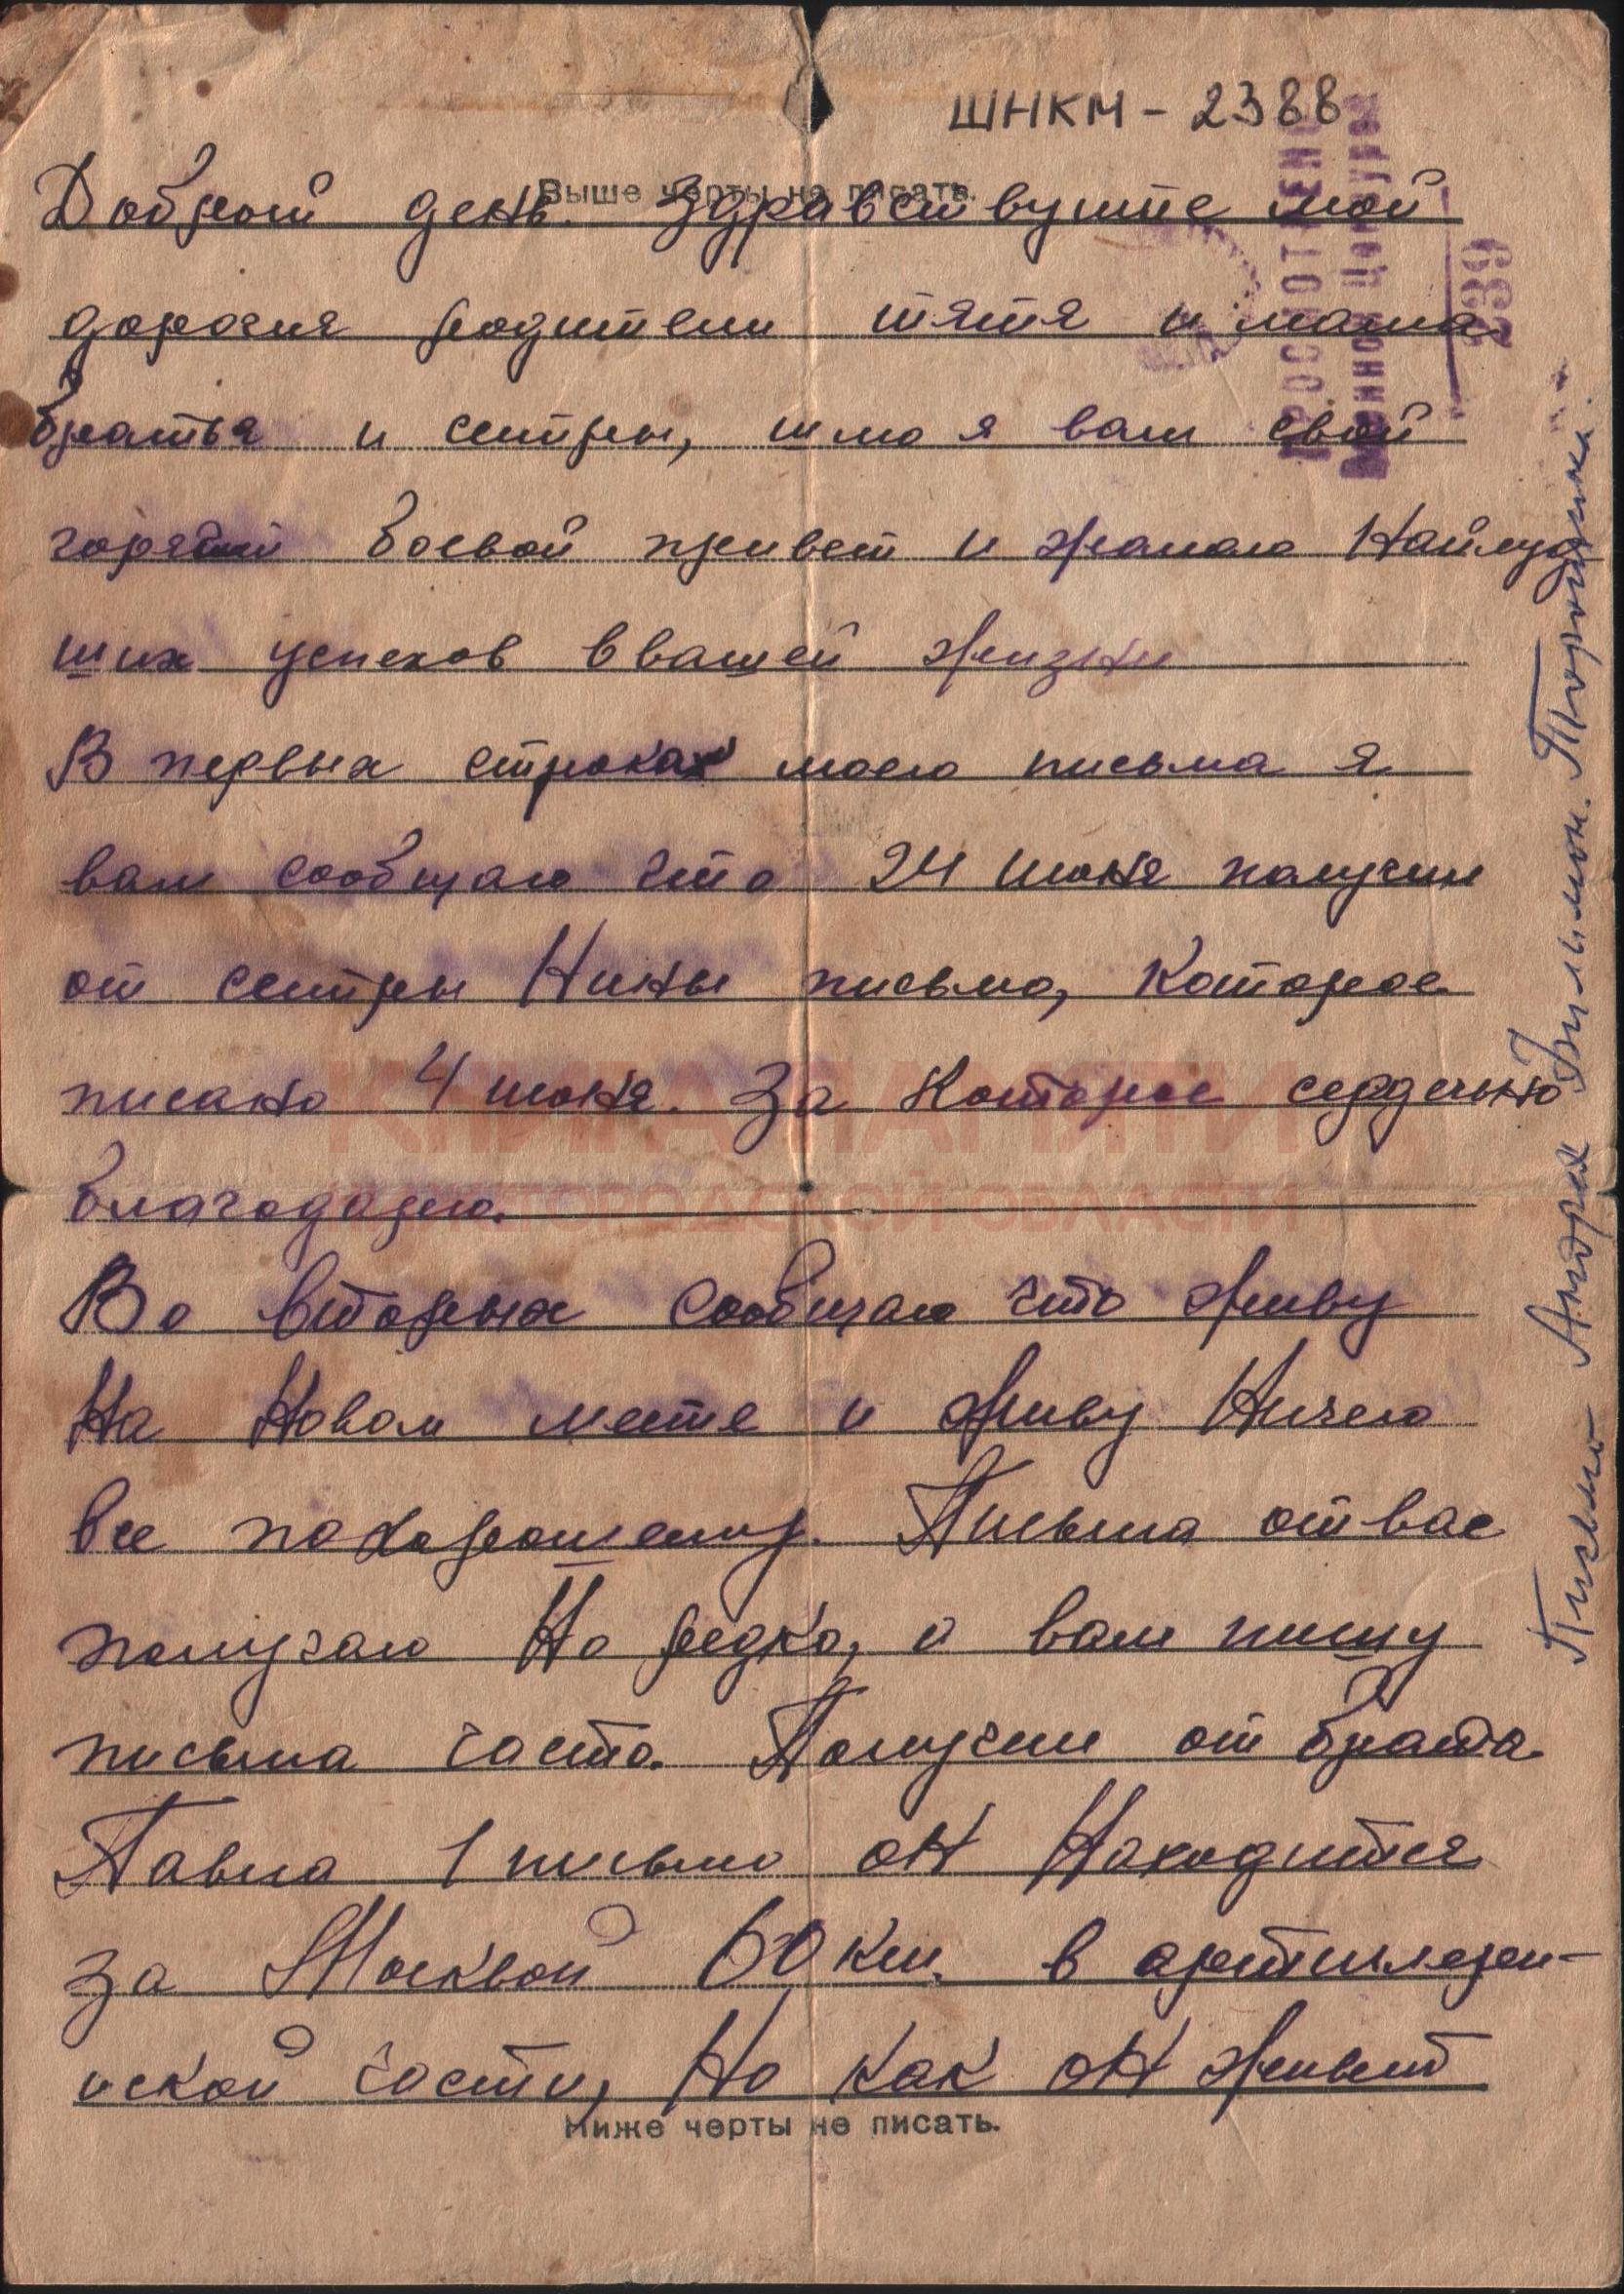 ШНКМ - 2388
Выше черты не писать.
Добрый день. Здравствуйте мои
дорогия родители тятя и мама
братья и сестры, шлю я вам свой
горячий боевой привет и желаю Найлуч
ших успехов в вашей жизни
В первых строках моего письма я
вам сообщаю что 24 июня получил
от сестры Нины письмо, которое
писано 4 июня. За которое сердечно
благодарю.
Во вторых сообщаю что живу
На Новом месте и живу Ничего
все похорошему. Письма от вас
получаю Но редко, а вам пишу
письма часто. Получил от брата
Павла 1 письмо оН Находится
за Москвой 60 км. в артиллери-
иской части, Но как оН живет
Ниже черты не писать.
ПРОСМОТРЕНО
Военной Цензурой
239
Письмо Андрея Филимон. Торопкина.
КНИГА ПАМЯТИ
НИЖЕГОРОДСКОЙ ОБЛАСТИ